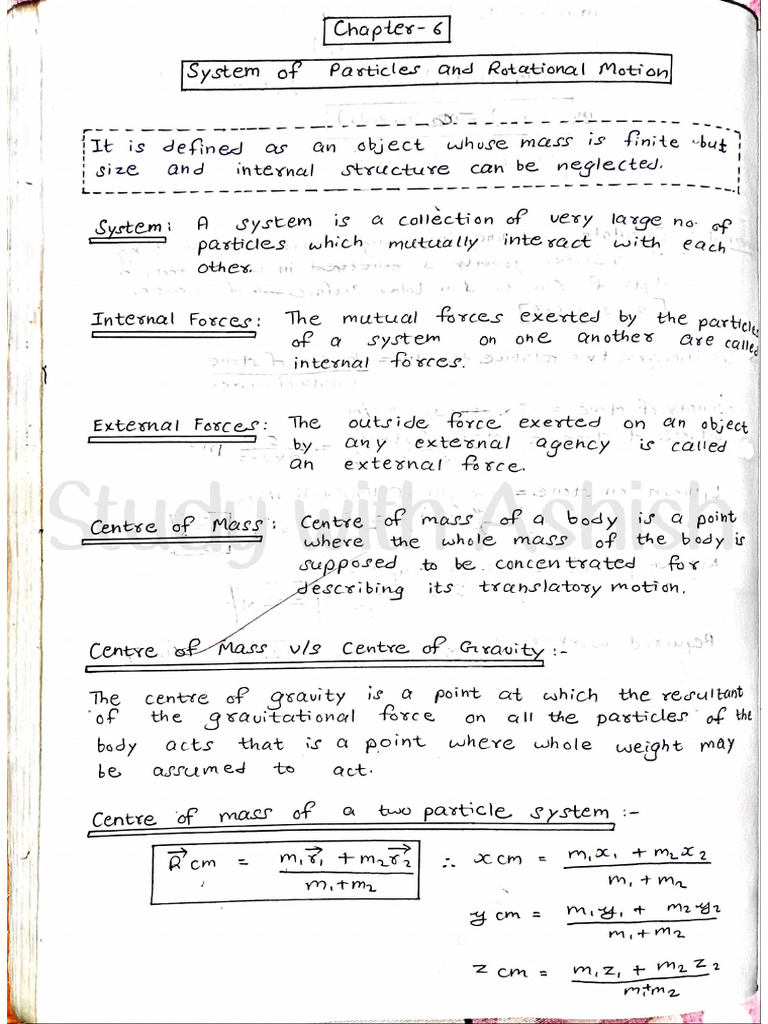 Chapter-6
System of Particles and Rotational Motion
It is defined as an object whose mass is finite but
size and internal structure can be neglected.
System: A system is a collection of very large no. of
particles which mutually interact with each
other.
Internal Forces: The mutual forces exerted by the particles
of a system on one another are called
internal forces.
External Forces: The outside force exerted on an object
by any external agency is called
an external force.
Study with Ashish
Centre of Mass: Centre of mass of a body is a point
where the whole mass of the body is
supposed to be concentrated for
describing its translatory motion.
Centre of Mass v/s Centre of Gravity :-
The centre of gravity is a point at which the resultant
of the gravitational force on all the particles of the
body acts that is a point where whole weight may
be assumed to act.
Centre of mass of a two particle system :-
R⃗ cm = (m₁r⃗₁ + m₂r⃗₂) / (m₁+m₂) ∴ x cm = (m₁x₁ + m₂x₂) / (m₁ + m₂)
y cm = (m₁y₁ + m₂y₂) / (m₁ + m₂)
z cm = (m₁z₁ + m₂z₂) / (m₁+m₂)